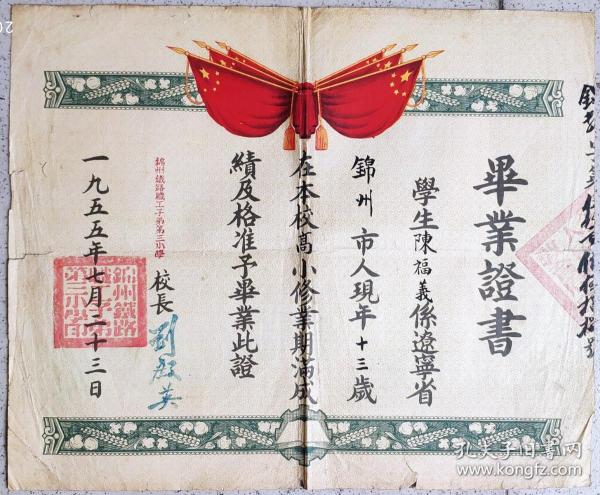 畢業證書
學生陳福義係遼寧省
錦州市人現年十三歲
在本校高小修業期滿成
績及格准予畢業此證
錦州鐵路職工子弟第三小學
校長
一九五五年七月二十三日
孔夫子旧书网
www.kongfz.com